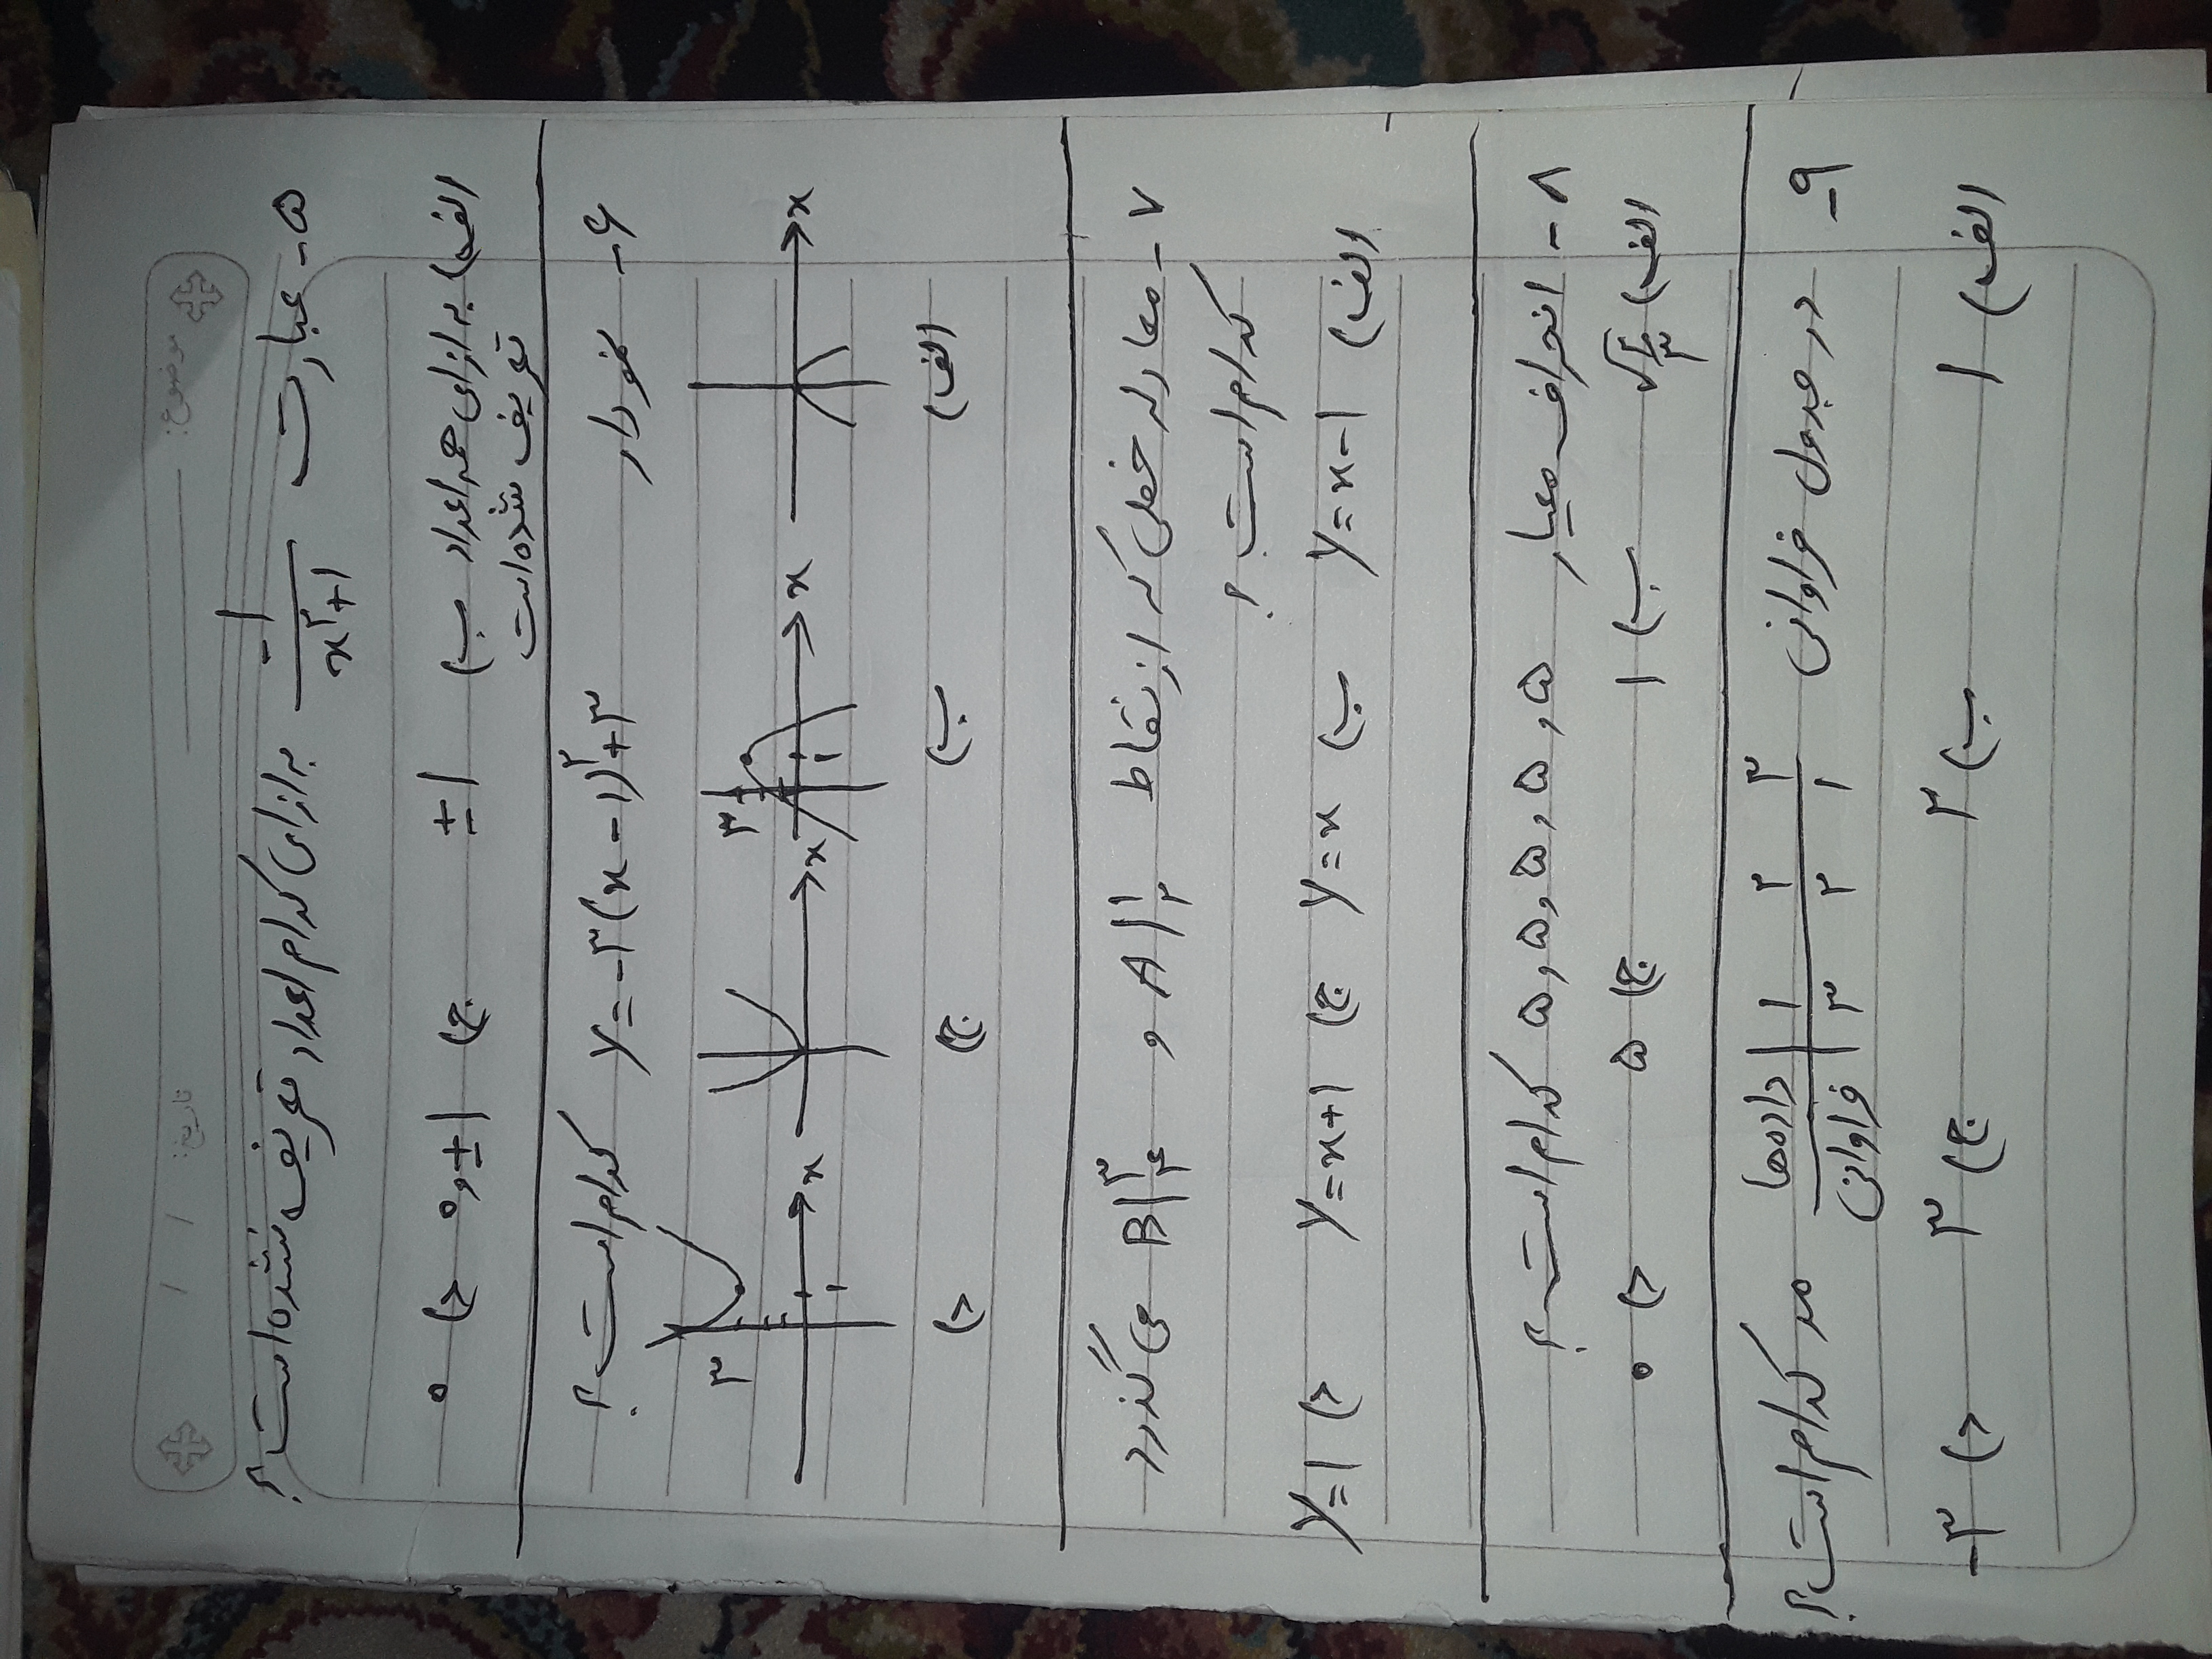 موضوع:
تاریخ: / /
۵- عبارت -۱/(x²+۱) به ازای کدام اعداد تعریف نشده است؟
الف) به ازای همه اعداد تعریف شده است ب) ±۱ ج) ۰ و ±۱ د) ۰
۶- نمودار y=-۲(x-۱)²+۳ کدام است؟
x x x x
۳ ۱ ۳ ۱
الف) ب) ج) د)
۷- معادله خطی که از نقاط A|۱ ۲ و B|۳ ۴ می گذرد
کدام است؟
الف) y=x-۱ ب) y=x ج) y=x+۱ د) y=۱
۸- انحراف معیار ۵,۵,۵,۵,۵ کدام است؟
الف) ب) ۱ ج) ۵ د) ۰
۹- در جدول فراوانی مد کدام است؟
داده‌ها ۱ ۲ ۳
فراوانی ۳ ۲ ۱
الف) ۱ ب) ۲ ج) ۳ د) -۳